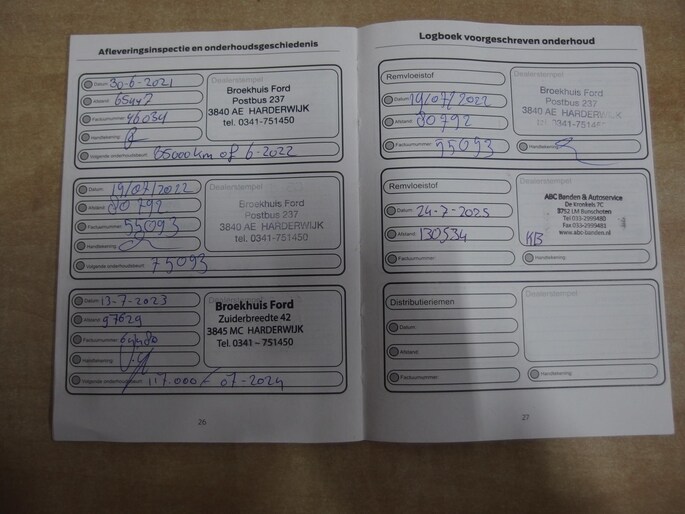 Afleveringsinspectie en onderhoudsgeschiedenis
Datum: 30-6-2021
Afstand:
Factuurnummer: 46034
Handtekening:
Volgende onderhoudsbeurt: 85000km of 6-2022
Dealerstempel
Broekhuis Ford
Postbus 237
3840 AE HARDERWIJK
tel. 0341-751450
Datum: 19/07/2022
Afstand: 80792
Factuurnummer: 55093
Handtekening:
Volgende onderhoudsbeurt: 75093
Dealerstempel
Broekhuis Ford
Postbus 237
3840 AE HARDERWIJK
tel. 0341-751450
Datum: 13-7-2023
Afstand: 97629
Factuurnummer:
Handtekening:
Volgende onderhoudsbeurt: 117.000 - 07-2024
Broekhuis Ford
Zuiderbreedte 42
3845 MC HARDERWIJK
Tel. 0341 – 751450
26
Logboek voorgeschreven onderhoud
Remvloeistof
Datum: 19/07/2022
Afstand: 80792
Factuurnummer: 55093
Dealerstempel
Broekhuis Ford
Postbus 237
3840 AE HARDERWIJK
tel. 0341-751450
Handtekening:
Remvloeistof
Datum: 24-7-2025
Afstand: 130534
Factuurnummer:
Dealerstempel
ABC Banden & Autoservice
De Kronkels 7C
3752 LM Bunschoten
Tel 033-2999480
Fax 033-2999481
www.abc-banden.nl
KB
Handtekening:
Distributieriemen
Datum:
Afstand:
Factuurnummer:
Dealerstempel
Handtekening:
27